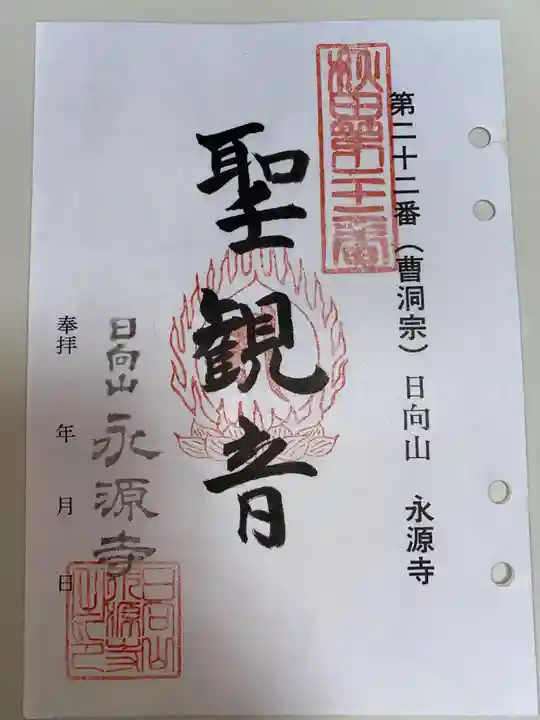 第二十二番（曹洞宗）日向山 永源寺
秋田第二十二番
聖観音
日向山 永源寺
奉拝 年 月 日
日向山永源寺之印